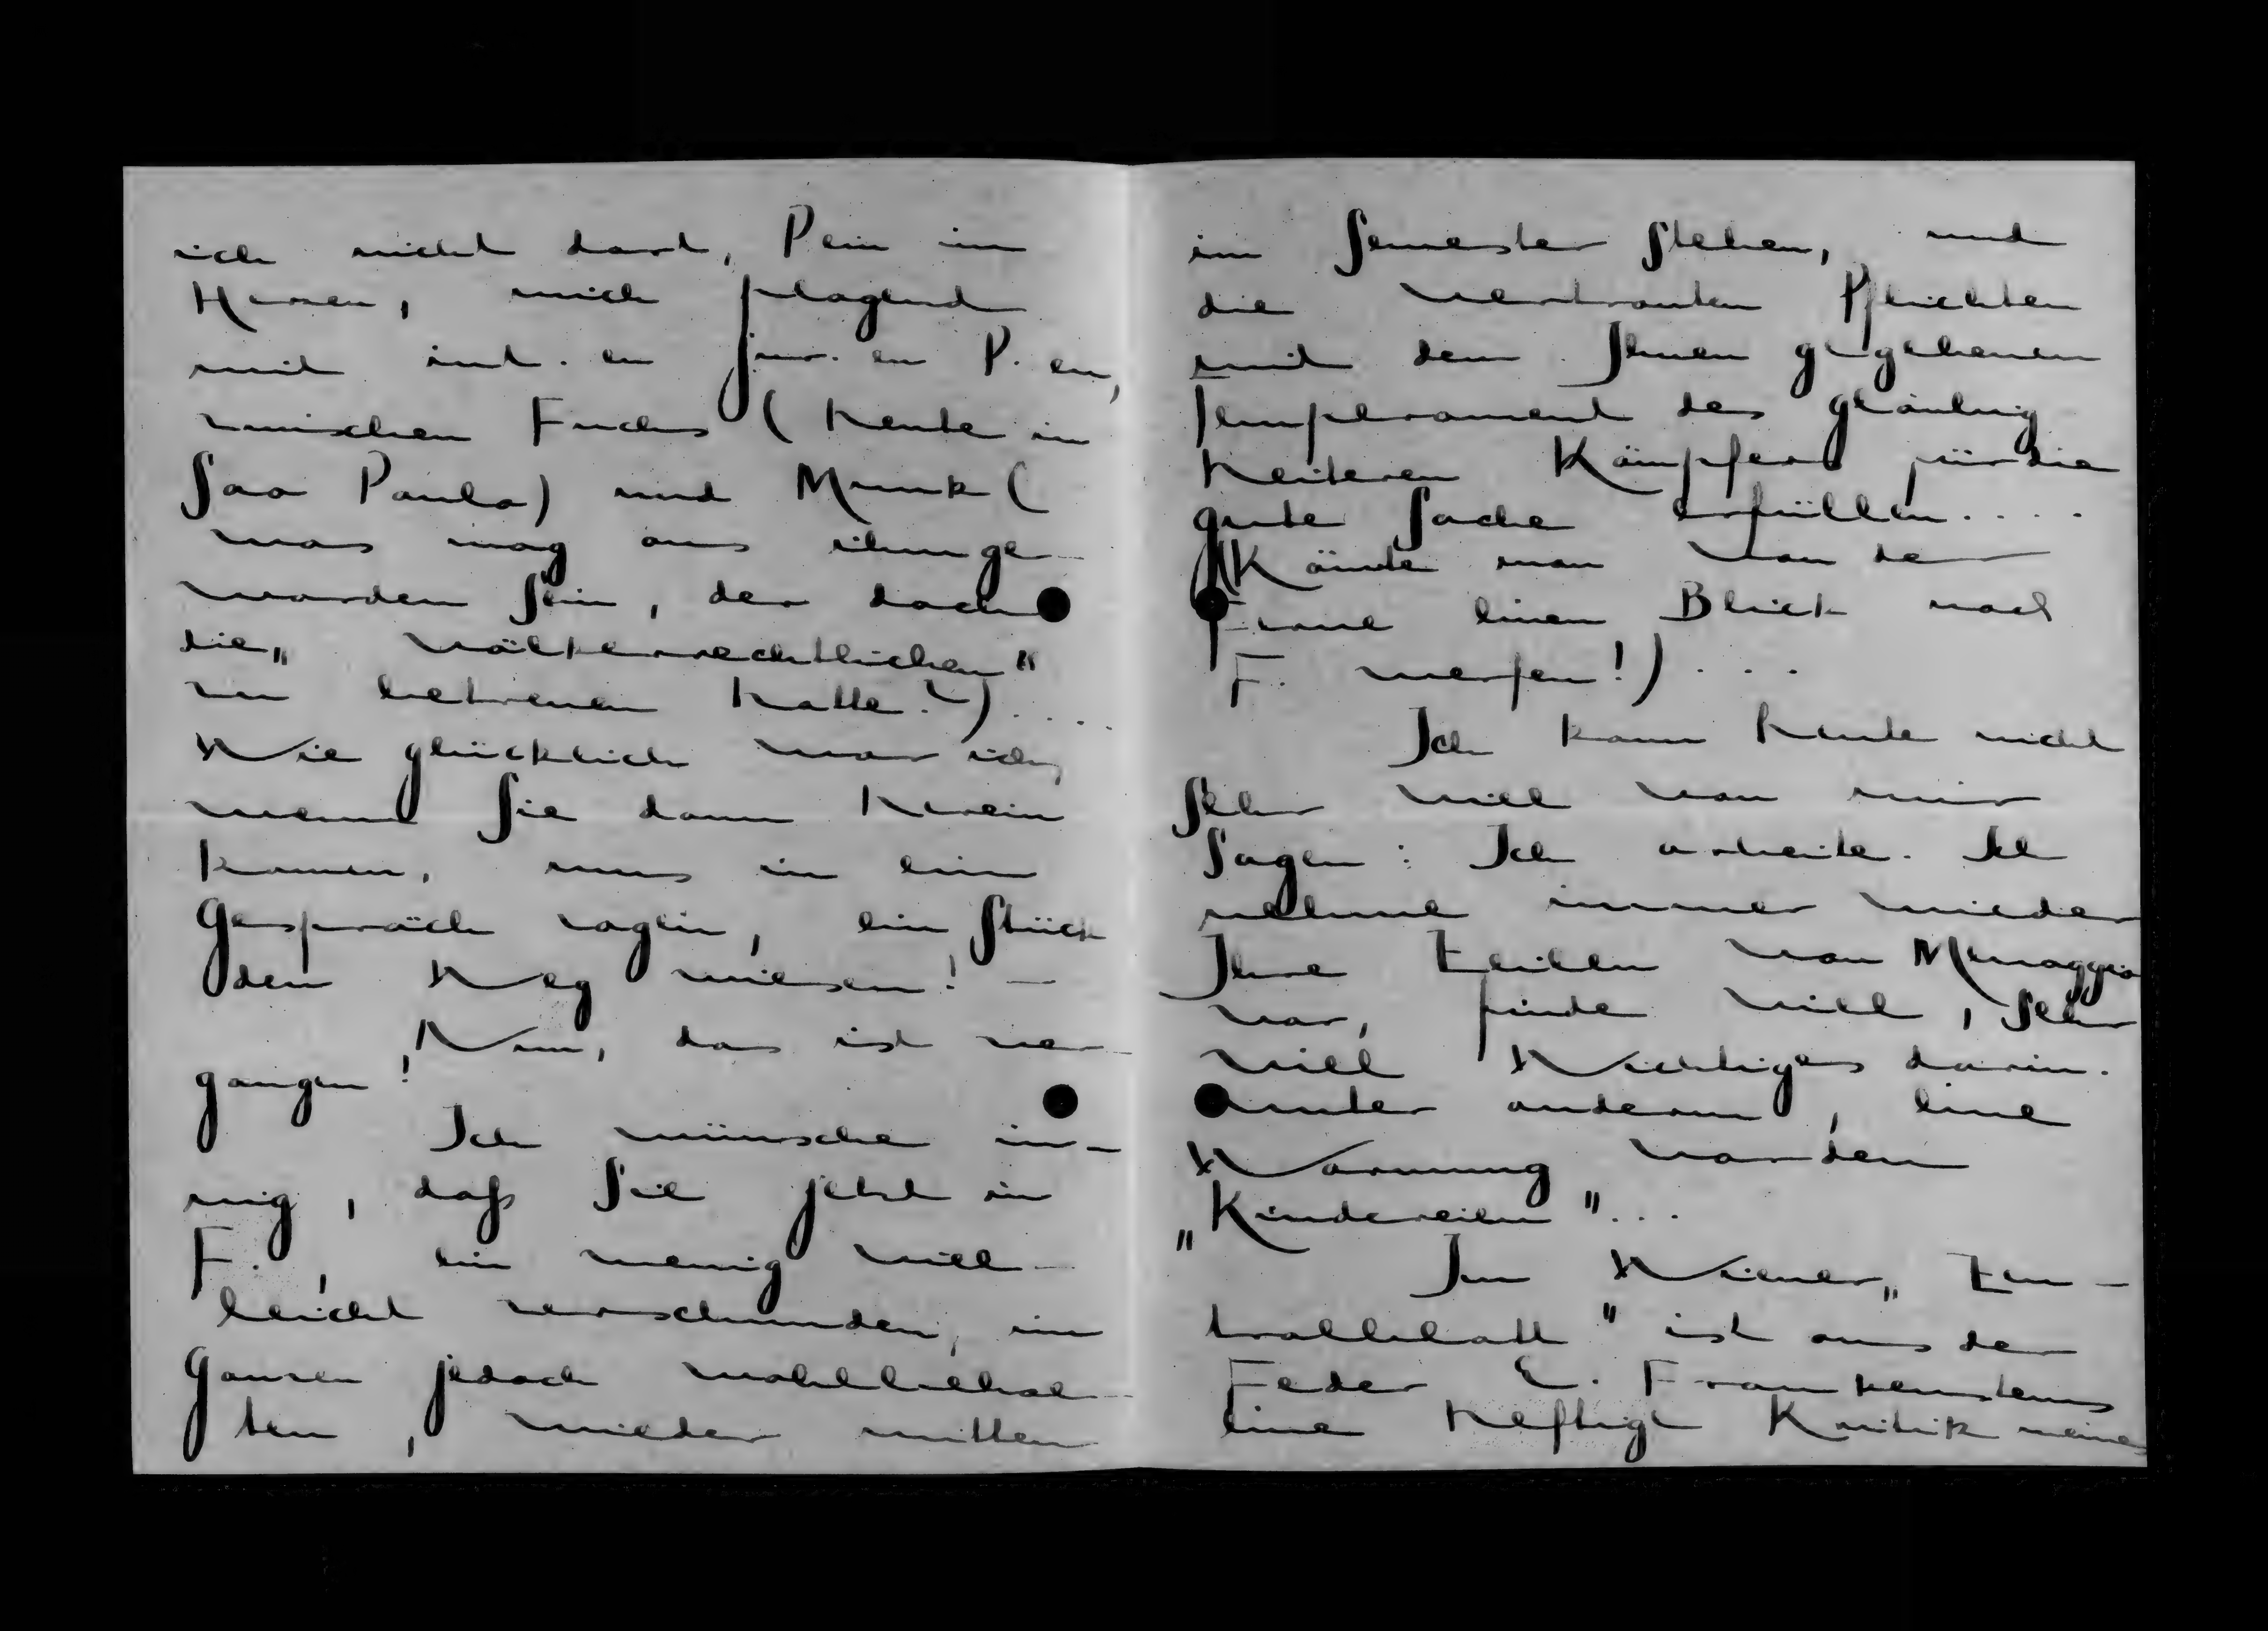 ich nicht dort, Pein im
Herzen, mich plagend
mit int. en jur. en P. en,
zwischen Fuchs (heute in
Sao Paulo) und Munk (
was mag aus ihm ge-
worden sein, der doch
die „völkerrechtlichen"
zu betreuen hatte?)....
Wie glücklich war ich,
wenn Sie dann herein
kamen, uns in ein
Gespräch zogen, ein Stück
den Weg wiesen! —
Nun, das ist ver-
gangen!
Ich wünsche in-
nig, daß Sie jetzt in
F., ein wenig viel-
leicht verschunden, im
Ganzen jedoch wohlbehal-
ten, wieder mitten
im Semester stehen, und
die vertrauten Pflichten
mit dem Ihnen gegebenen
Temperament des gläubig
heiteren Kämpfers für die
gute Sache erfüllen....
(Könnte man von der
Ferne einen Blick nach
F. werfen!)....
Ich kann heute nicht
sehr viel von mir
sagen: Ich arbeite. Ich
nehme immer wieder
Ihre Zeilen von Menaggio
vor, finde viel, sehr
viel Wichtiges darin.
unter anderm, eine
Warnung vor den
„Kindereien"...
Im Wiener „Zen-
tralblatt" ist aus der
Feder E. Frankensteins
eine heftige Kritik meines